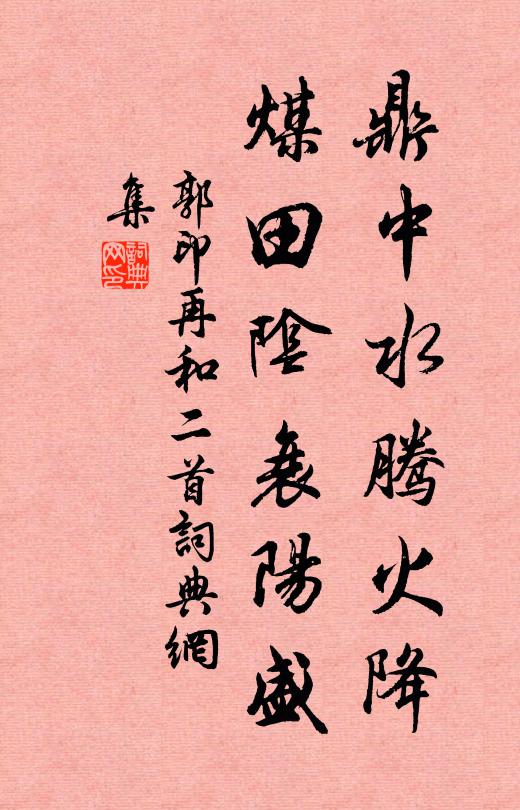 鼎中水騰火降
煤田陰衰陽盛
郭印再和二首詞典網
集
詞典網印